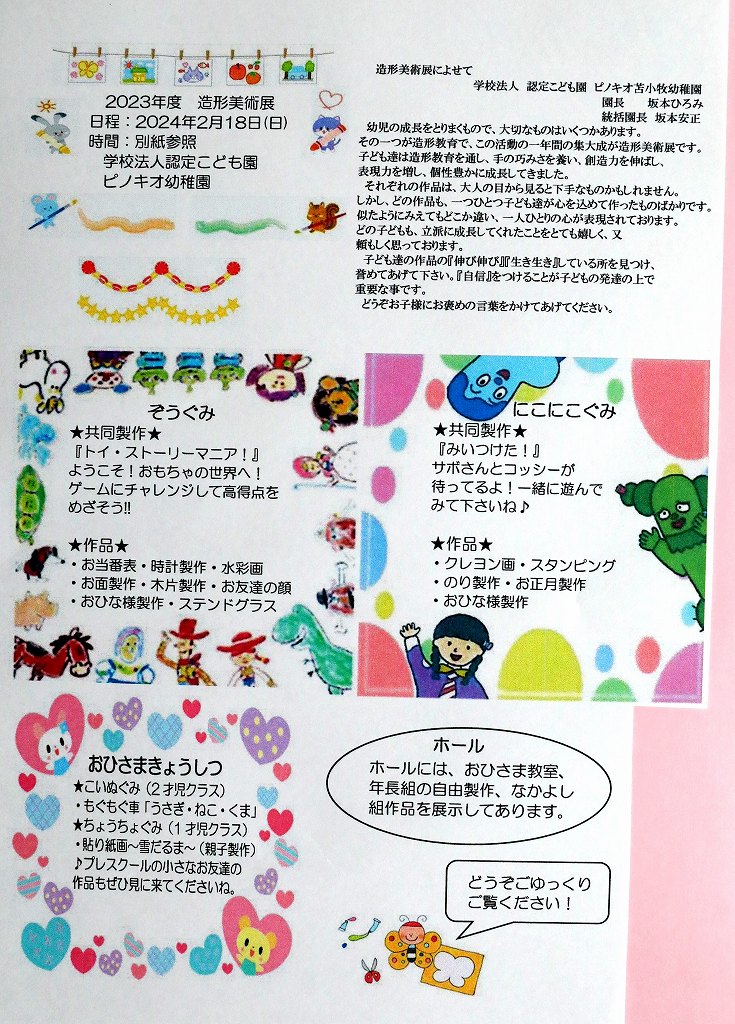 2023年度　造形美術展
日程：2024年2月18日(日)
時間：別紙参照
学校法人認定こども園
ピノキオ幼稚園
造形美術展によせて
学校法人　認定こども園　ピノキオ苫小牧幼稚園
園長　　坂本ひろみ
統括園長　坂本安正
幼児の成長をとりまくもので、大切なものはいくつかあります。
その一つが造形教育で、この活動の一年間の集大成が造形美術展です。
子ども達は造形教育を通し、手の巧みさを養い、創造力を伸ばし、
表現力を増し、個性豊かに成長してきました。
それぞれの作品は、大人の目から見ると下手なものかもしれません。
しかし、どの作品も、一つひとつ子ども達が心を込めて作ったものばかりです。
似たようにみえてもどこか違い、一人ひとりの心が表現されております。
どの子どもも、立派に成長してくれたことをとても嬉しく、又
頼もしく思っております。
子ども達の作品の『伸び伸び』『生き生き』している所を見つけ、
誉めてあげて下さい。『自信』をつけることが子どもの発達の上で
重要な事です。
どうぞお子様にお褒めの言葉をかけてあげてください。
ぞうぐみ
★共同製作★
『トイ・ストーリーマニア！』
ようこそ！おもちゃの世界へ！
ゲームにチャレンジして高得点を
めざそう!!
★作品★
・お当番表・時計製作・水彩画
・お面製作・木片製作・お友達の顔
・おひな様製作・ステンドグラス
にこにこぐみ
★共同製作★
『みいつけた！』
サボさんとコッシーが
待ってるよ！一緒に遊んで
みて下さいね♪
★作品★
・クレヨン画・スタンピング
・のり製作・お正月製作
・おひな様製作
おひさまきょうしつ
★こいぬぐみ（２才児クラス）
・もぐもぐ車「うさぎ・ねこ・くま」
★ちょうちょぐみ（１才児クラス）
・貼り紙画～雪だるま～（親子製作）
♪プレスクールの小さなお友達の
作品もぜひ見に来てくださいね。
ホール
ホールには、おひさま教室、
年長組の自由製作、なかよし
組作品を展示してあります。
どうぞごゆっくり
ご覧ください！